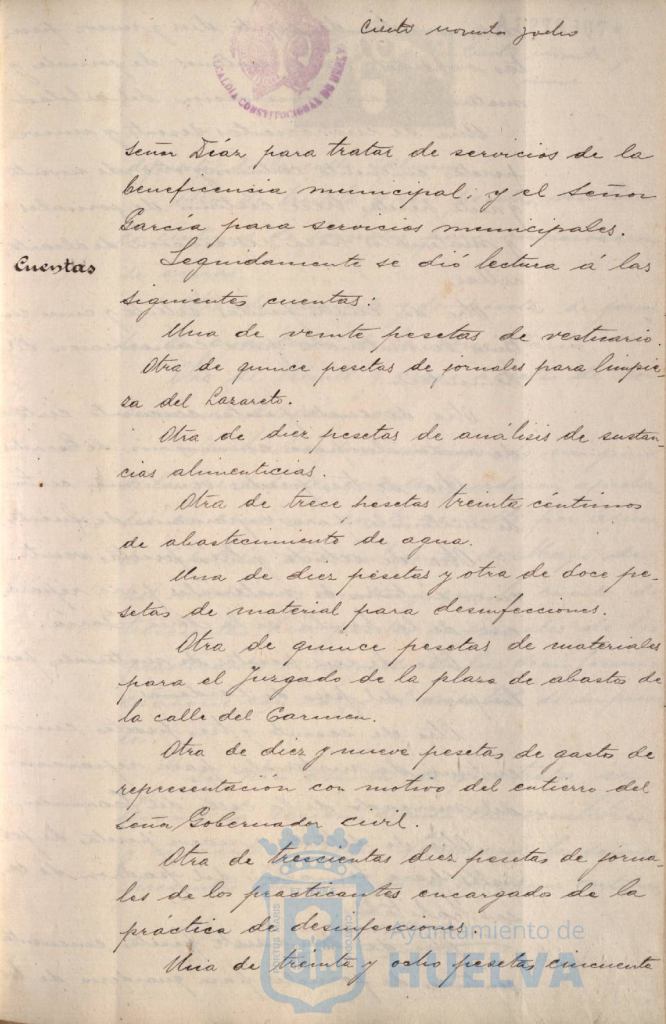 Ciento noventa y ocho
ALCALDIA CONSTITUCIONAL DE HUELVA
Señor Díaz para tratar de servicios de la
beneficencia municipal; y el Señor
García para servicios municipales.
Cuentas
Seguidamente se dió lectura á las
siguientes cuentas:
Una de veinte pesetas de vestuario.
Otra de quince pesetas de jornales para limpie-
za del Lazareto.
Otra de diez pesetas de análisis de sustan-
cias alimenticias.
Otra de trece pesetas treinta céntimos
de abastecimiento de agua.
Una de diez pesetas y otra de doce pe-
setas de material para desinfecciones.
Otra de quince pesetas de materiales
para el Juzgado de la plaza de abastos de
la calle del Carmen.
Otra de diez y nueve pesetas de gastos de
representación con motivo del entierro del
Señor Gobernador civil.
Otra de trescientas diez pesetas de jorna-
les de los practicantes encargado de la
práctica de desinfecciones.
Una de treinta y ocho pesetas cincuenta
Ayuntamiento de
HUELVA